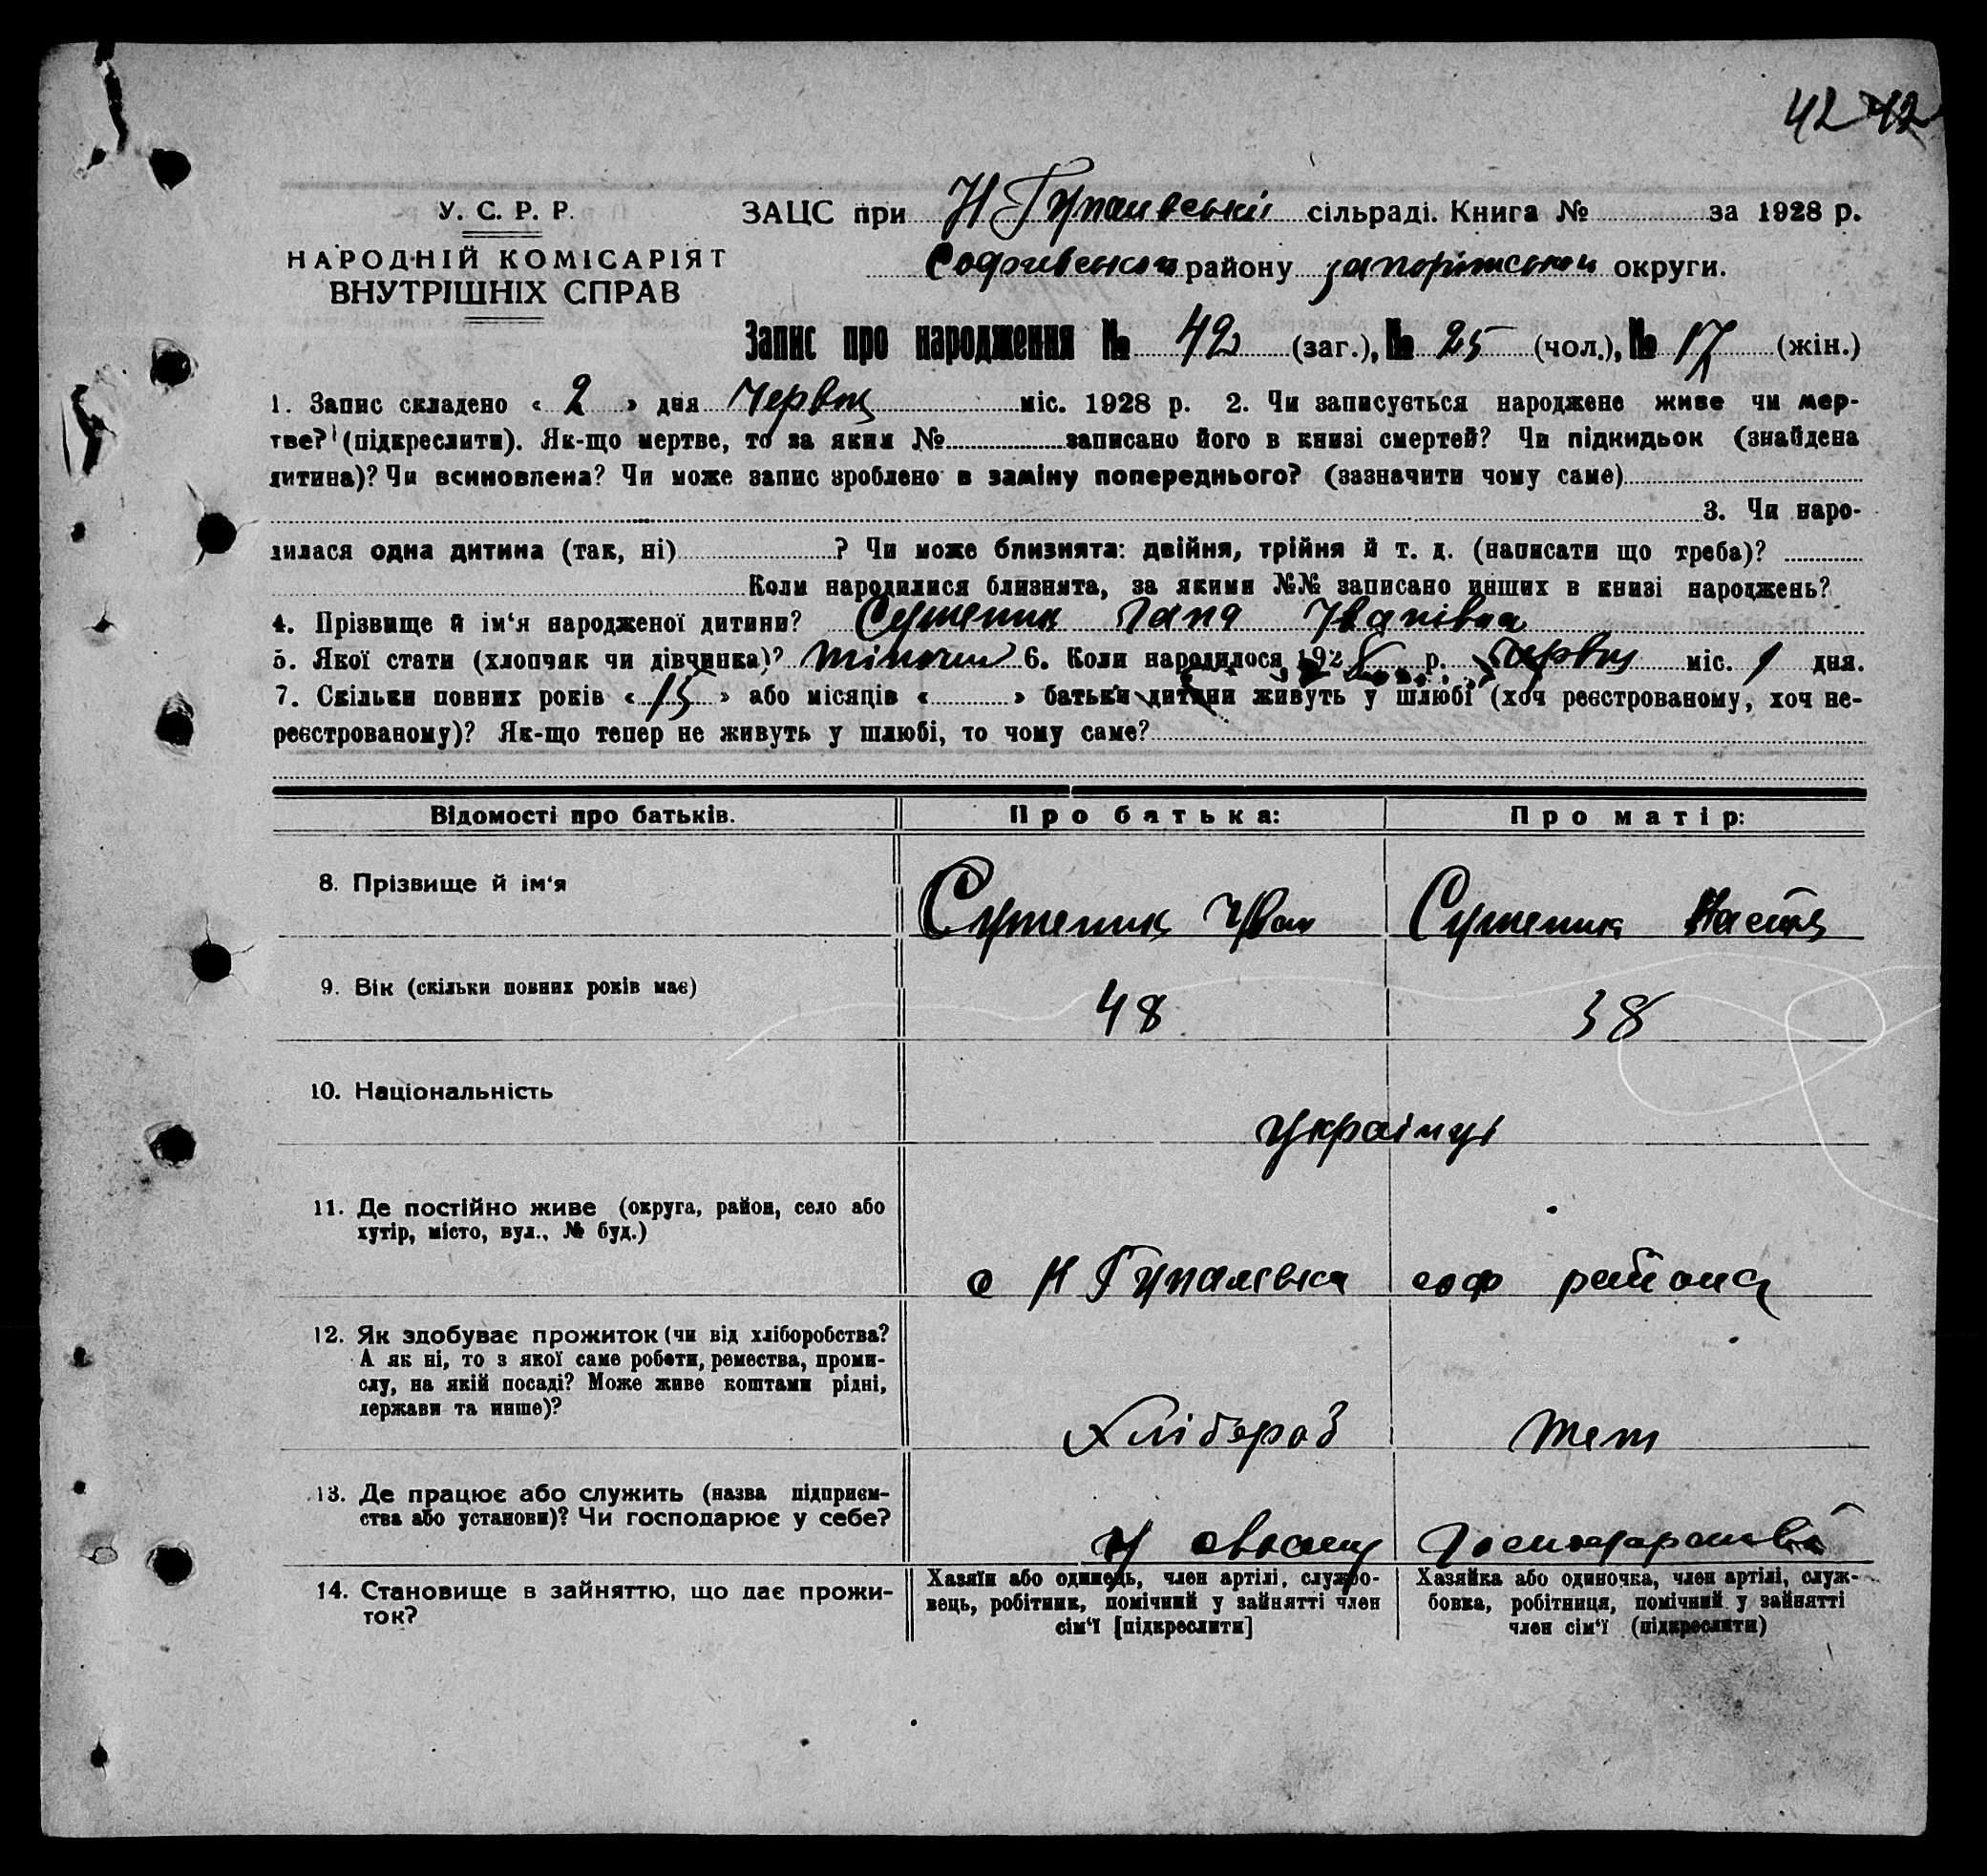 42 42
У. С. Р. Р.
НАРОДНІЙ КОМІСАРІЯТ
ВНУТРІШНІХ СПРАВ
ЗАЦС при Н Гупалвській сільраді. Книга № за 1928 р.
Софиевського району запоріжської округи.
Запис про народження № 42 (заг.), № 25 (чол.), № 17 (жін.)
1. Запис складено « 2 » дня Червц міс. 1928 р. 2. Чи записується народжене живе чи мер-
тве? (підкреслити). Як-що мертве, то за яким № записано його в книзі смертей? Чи підкидьок (знайдена
дитина)? Чи всиновлена? Чи може запис зроблено в заміну попереднього? (зазначити чому саме)
3. Чи наро-
дилася одна дитина (так, ні) ? Чи може близнята: двійня, трійня й т. д. (написати що треба)?
Коли народилися близнята, за якими №№ записано инших в книзі народжень?
4. Прізвище й ім‘я народженої дитини? Іванівна
5. Якої стати (хлопчик чи дівчинка)? 6. Коли народилося 1928 р. Червц міс. 1 дня.
7. Скільки повних років « 15 » або місяців « » батьки дитини живуть у шлюбі (хоч реєстрованому, хоч не-
реєстрованому)? Як-що тепер не живуть у шлюбі, то чому саме?
Відомості про батьків. Про батька: Про матір:
8. Прізвище й ім‘я Іван Настя
9. Вік (скільки повних років має) 48 38
10. Національність українці
11. Де постійно живе (округа, район, село або
хутір, місто, вул., № буд.)
с Н Гупалівка соф района
12. Як здобуває прожиток (чи від хліборобства?
А як ні, то з якої саме роботи, ремества, проми-
слу, на якій посаді? Може живе коштами рідні,
держави та инше)?
Хлібороб теж
13. Де працює або служить (назва підприєм-
ства або установи)? Чи господарює у себе?
У своему Господарстві
14. Становище в зайняттю, що дає прожи-
ток?
Хазяїн або одинець, член артілі, службо-
вець, робітник, помічний у зайнятті член
сім‘ї [підкреслити]
Хазяйка або одиночка, член артілі, служ-
бовка, робітниця, помічний у зайнятті
член сім‘ї (підкреслити)